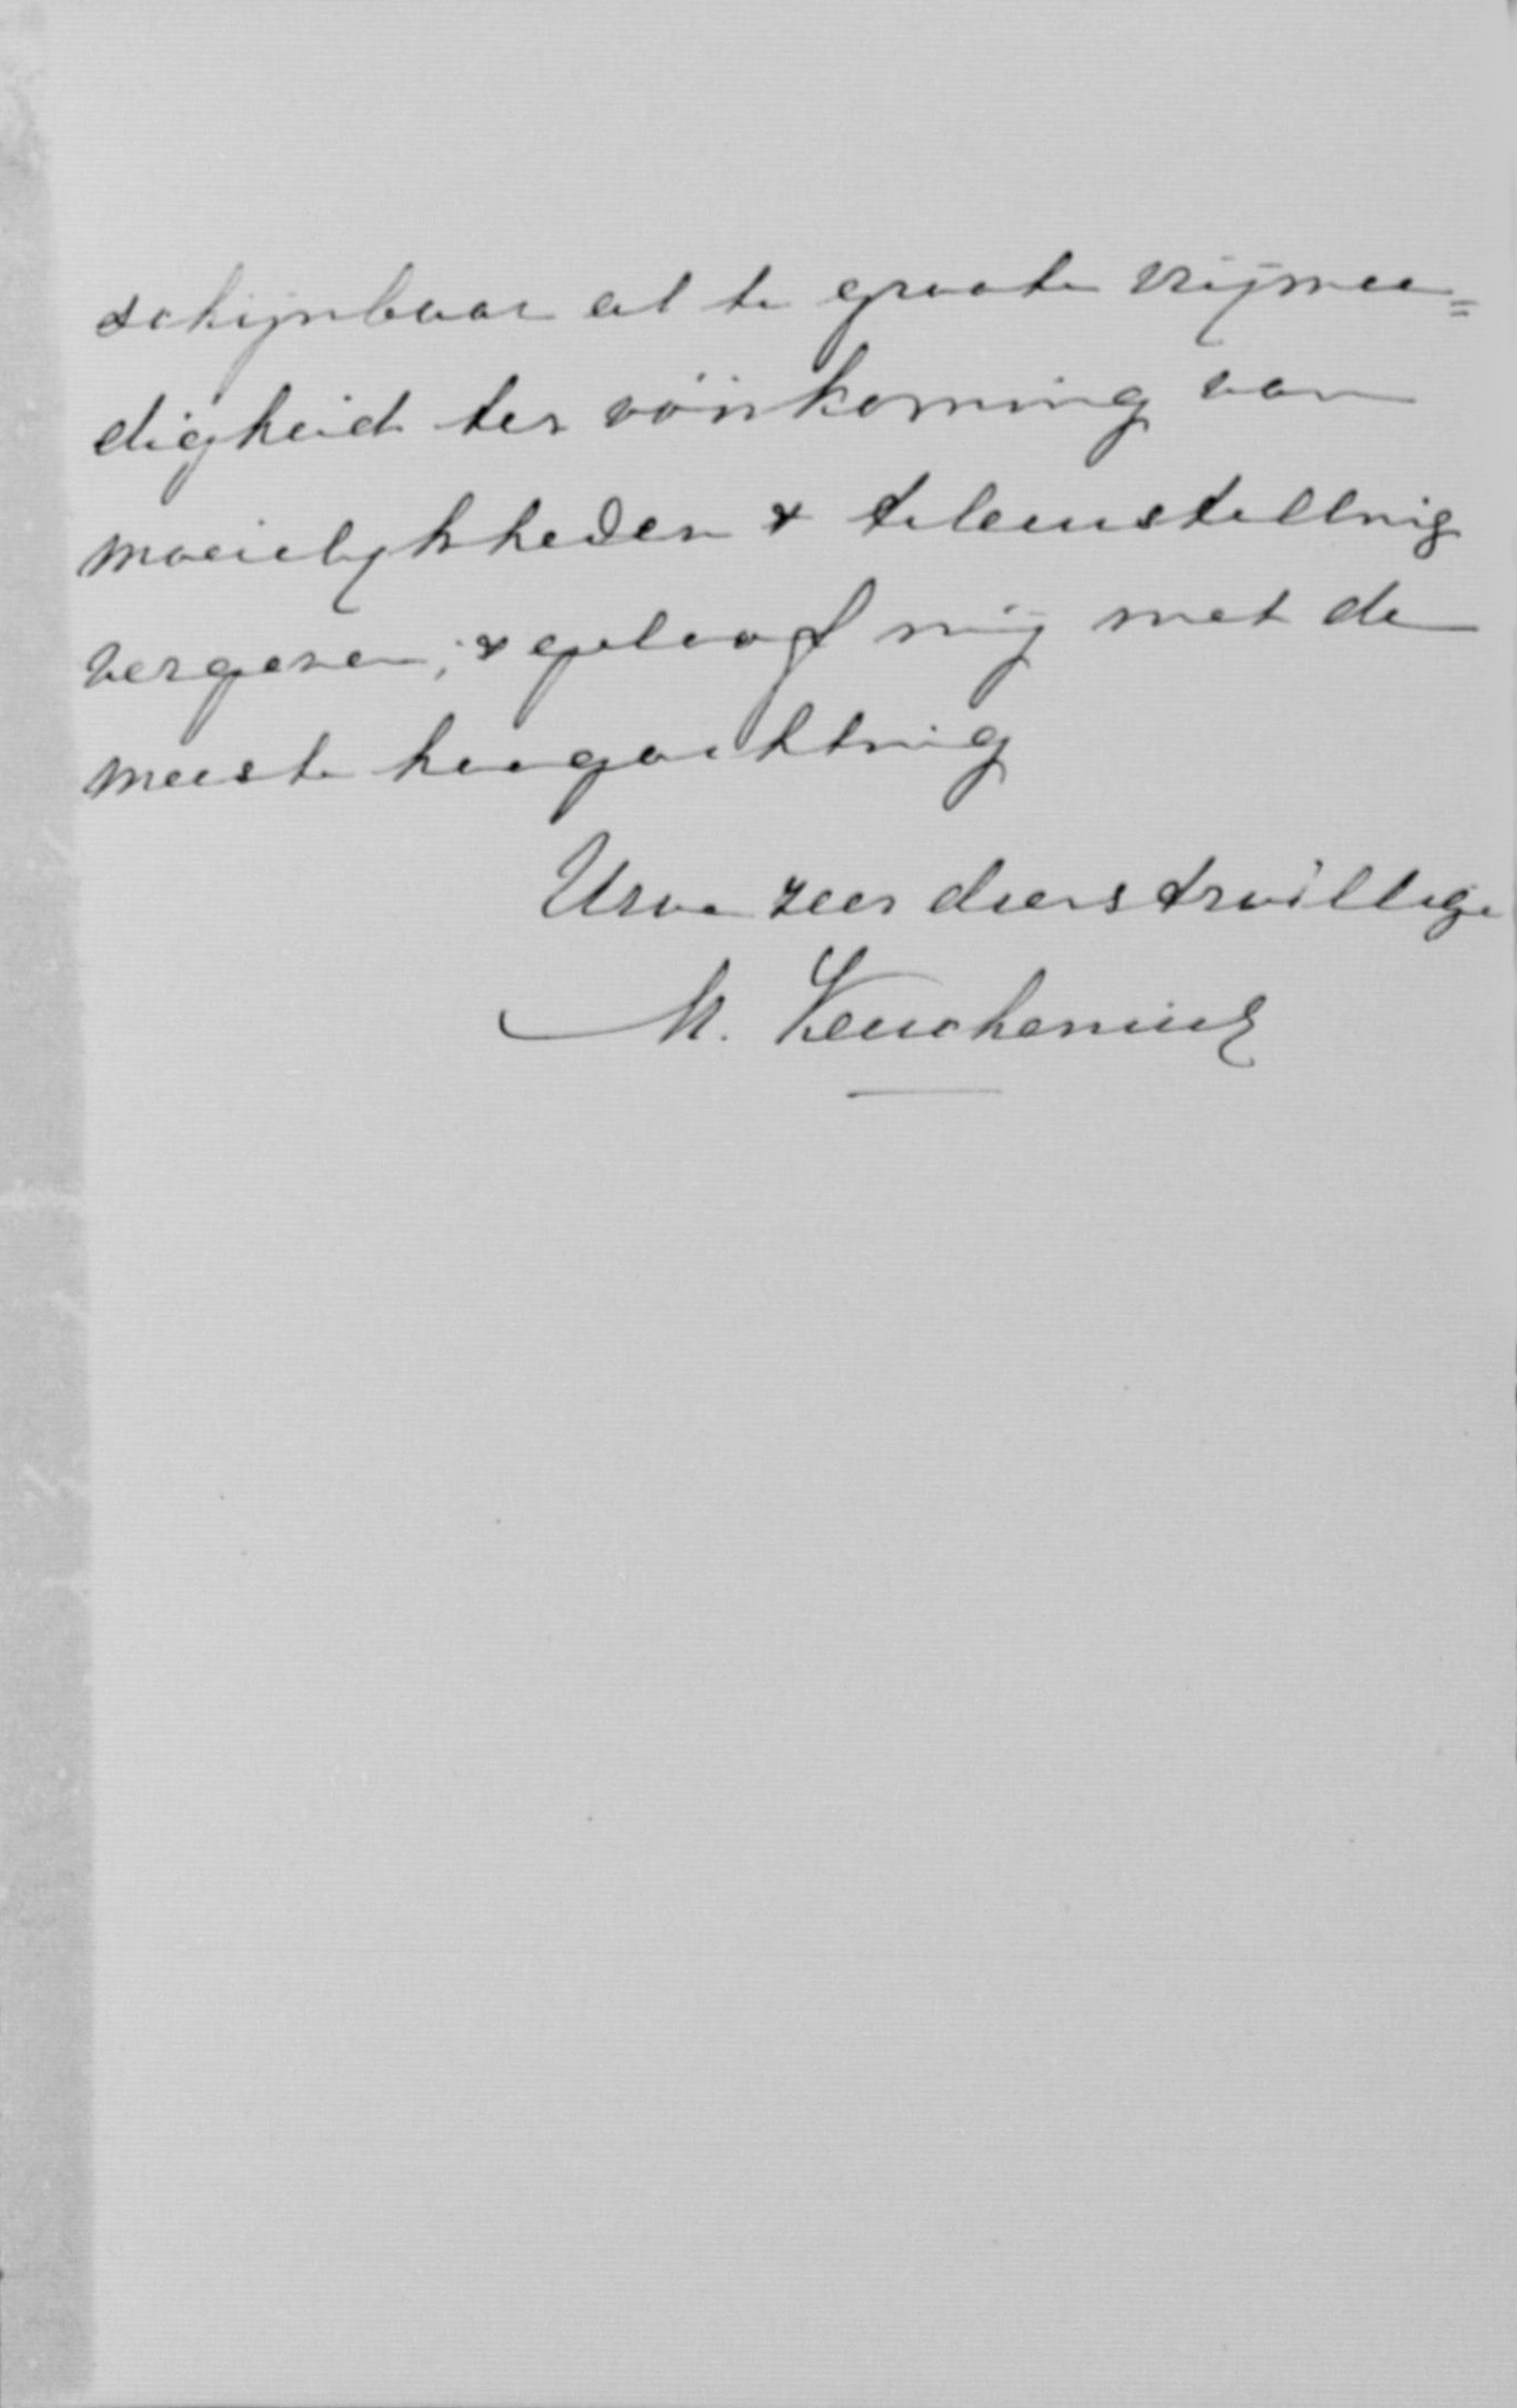 schijnbaar al te groote vrijmoe=
digheid ter vóórkoming van
moeielijkheden & teleurstelling
vergeven, & geloof mij met de
meeste hoogachting
Uwe zeer dienstwillige
M. Keuchenius